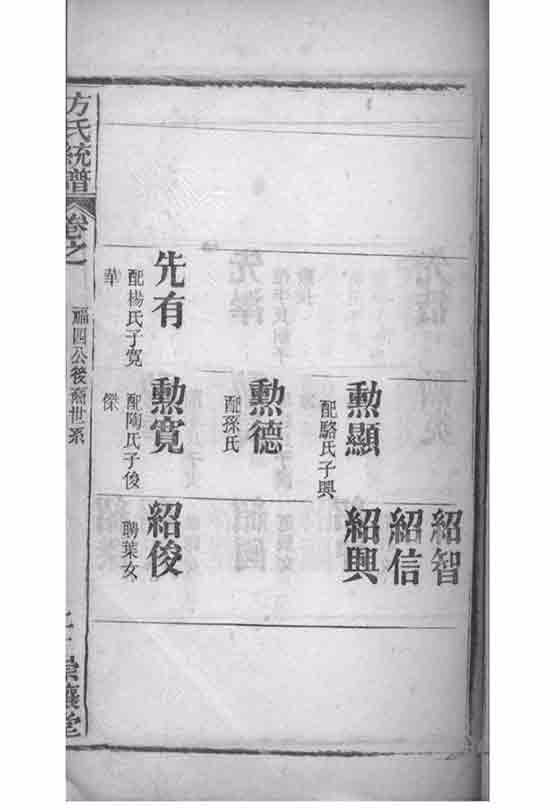 紹智
紹信
勳顯
配駱氏子興
紹興
勳德
配孫氏
先有
配楊氏子寬
華
勳寬
配陶氏子俊
傑
紹俊
聘葉女
方氏統譜
卷之
福四公後裔世系